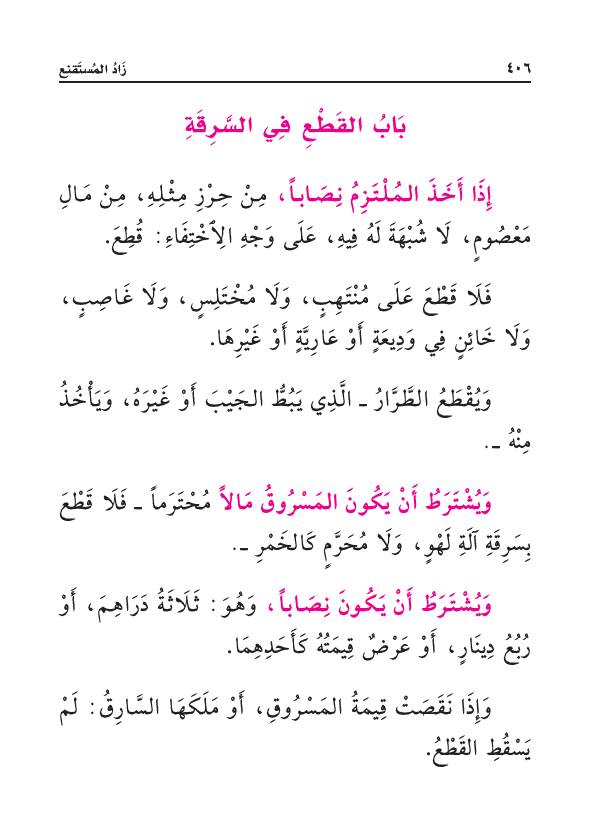 ٤٠٦
زَادُ المُستَقنِع
بَابُ القَطْعِ فِي السَّرِقَةِ
إِذَا أَخَذَ المُلْتَزِمُ نِصَاباً، مِنْ حِرْزِ مِثْلِهِ، مِنْ مَالِ
مَعْصُومٍ، لَا شُبْهَةَ لَهُ فِيهِ، عَلَى وَجْهِ الِٱخْتِفَاءِ: قُطِعَ.
فَلَا قَطْعَ عَلَى مُنْتَهِبٍ، وَلَا مُخْتَلِسٍ، وَلَا غَاصِبٍ،
وَلَا خَائِنٍ فِي وَدِيعَةٍ أَوْ عَارِيَّةٍ أَوْ غَيْرِهَا.
وَيُقْطَعُ الطَّرَّارُ ـ الَّذِي يَبُطُّ الجَيْبَ أَوْ غَيْرَهُ، وَيَأْخُذُ
مِنْهُ ـ.
وَيُشْتَرَطُ أَنْ يَكُونَ المَسْرُوقُ مَالاً مُحْتَرَماً ـ فَلَا قَطْعَ
بِسَرِقَةِ آلَةِ لَهْوٍ، وَلَا مُحَرَّمٍ كَالخَمْرِ ـ.
وَيُشْتَرَطُ أَنْ يَكُونَ نِصَاباً، وَهُوَ: ثَلَاثَةُ دَرَاهِمَ، أَوْ
رُبُعُ دِينَارٍ، أَوْ عَرْضٌ قِيمَتُهُ كَأَحَدِهِمَا.
وَإِذَا نَقَصَتْ قِيمَةُ المَسْرُوقِ، أَوْ مَلَكَهَا السَّارِقُ: لَمْ
يَسْقُطِ القَطْعُ.